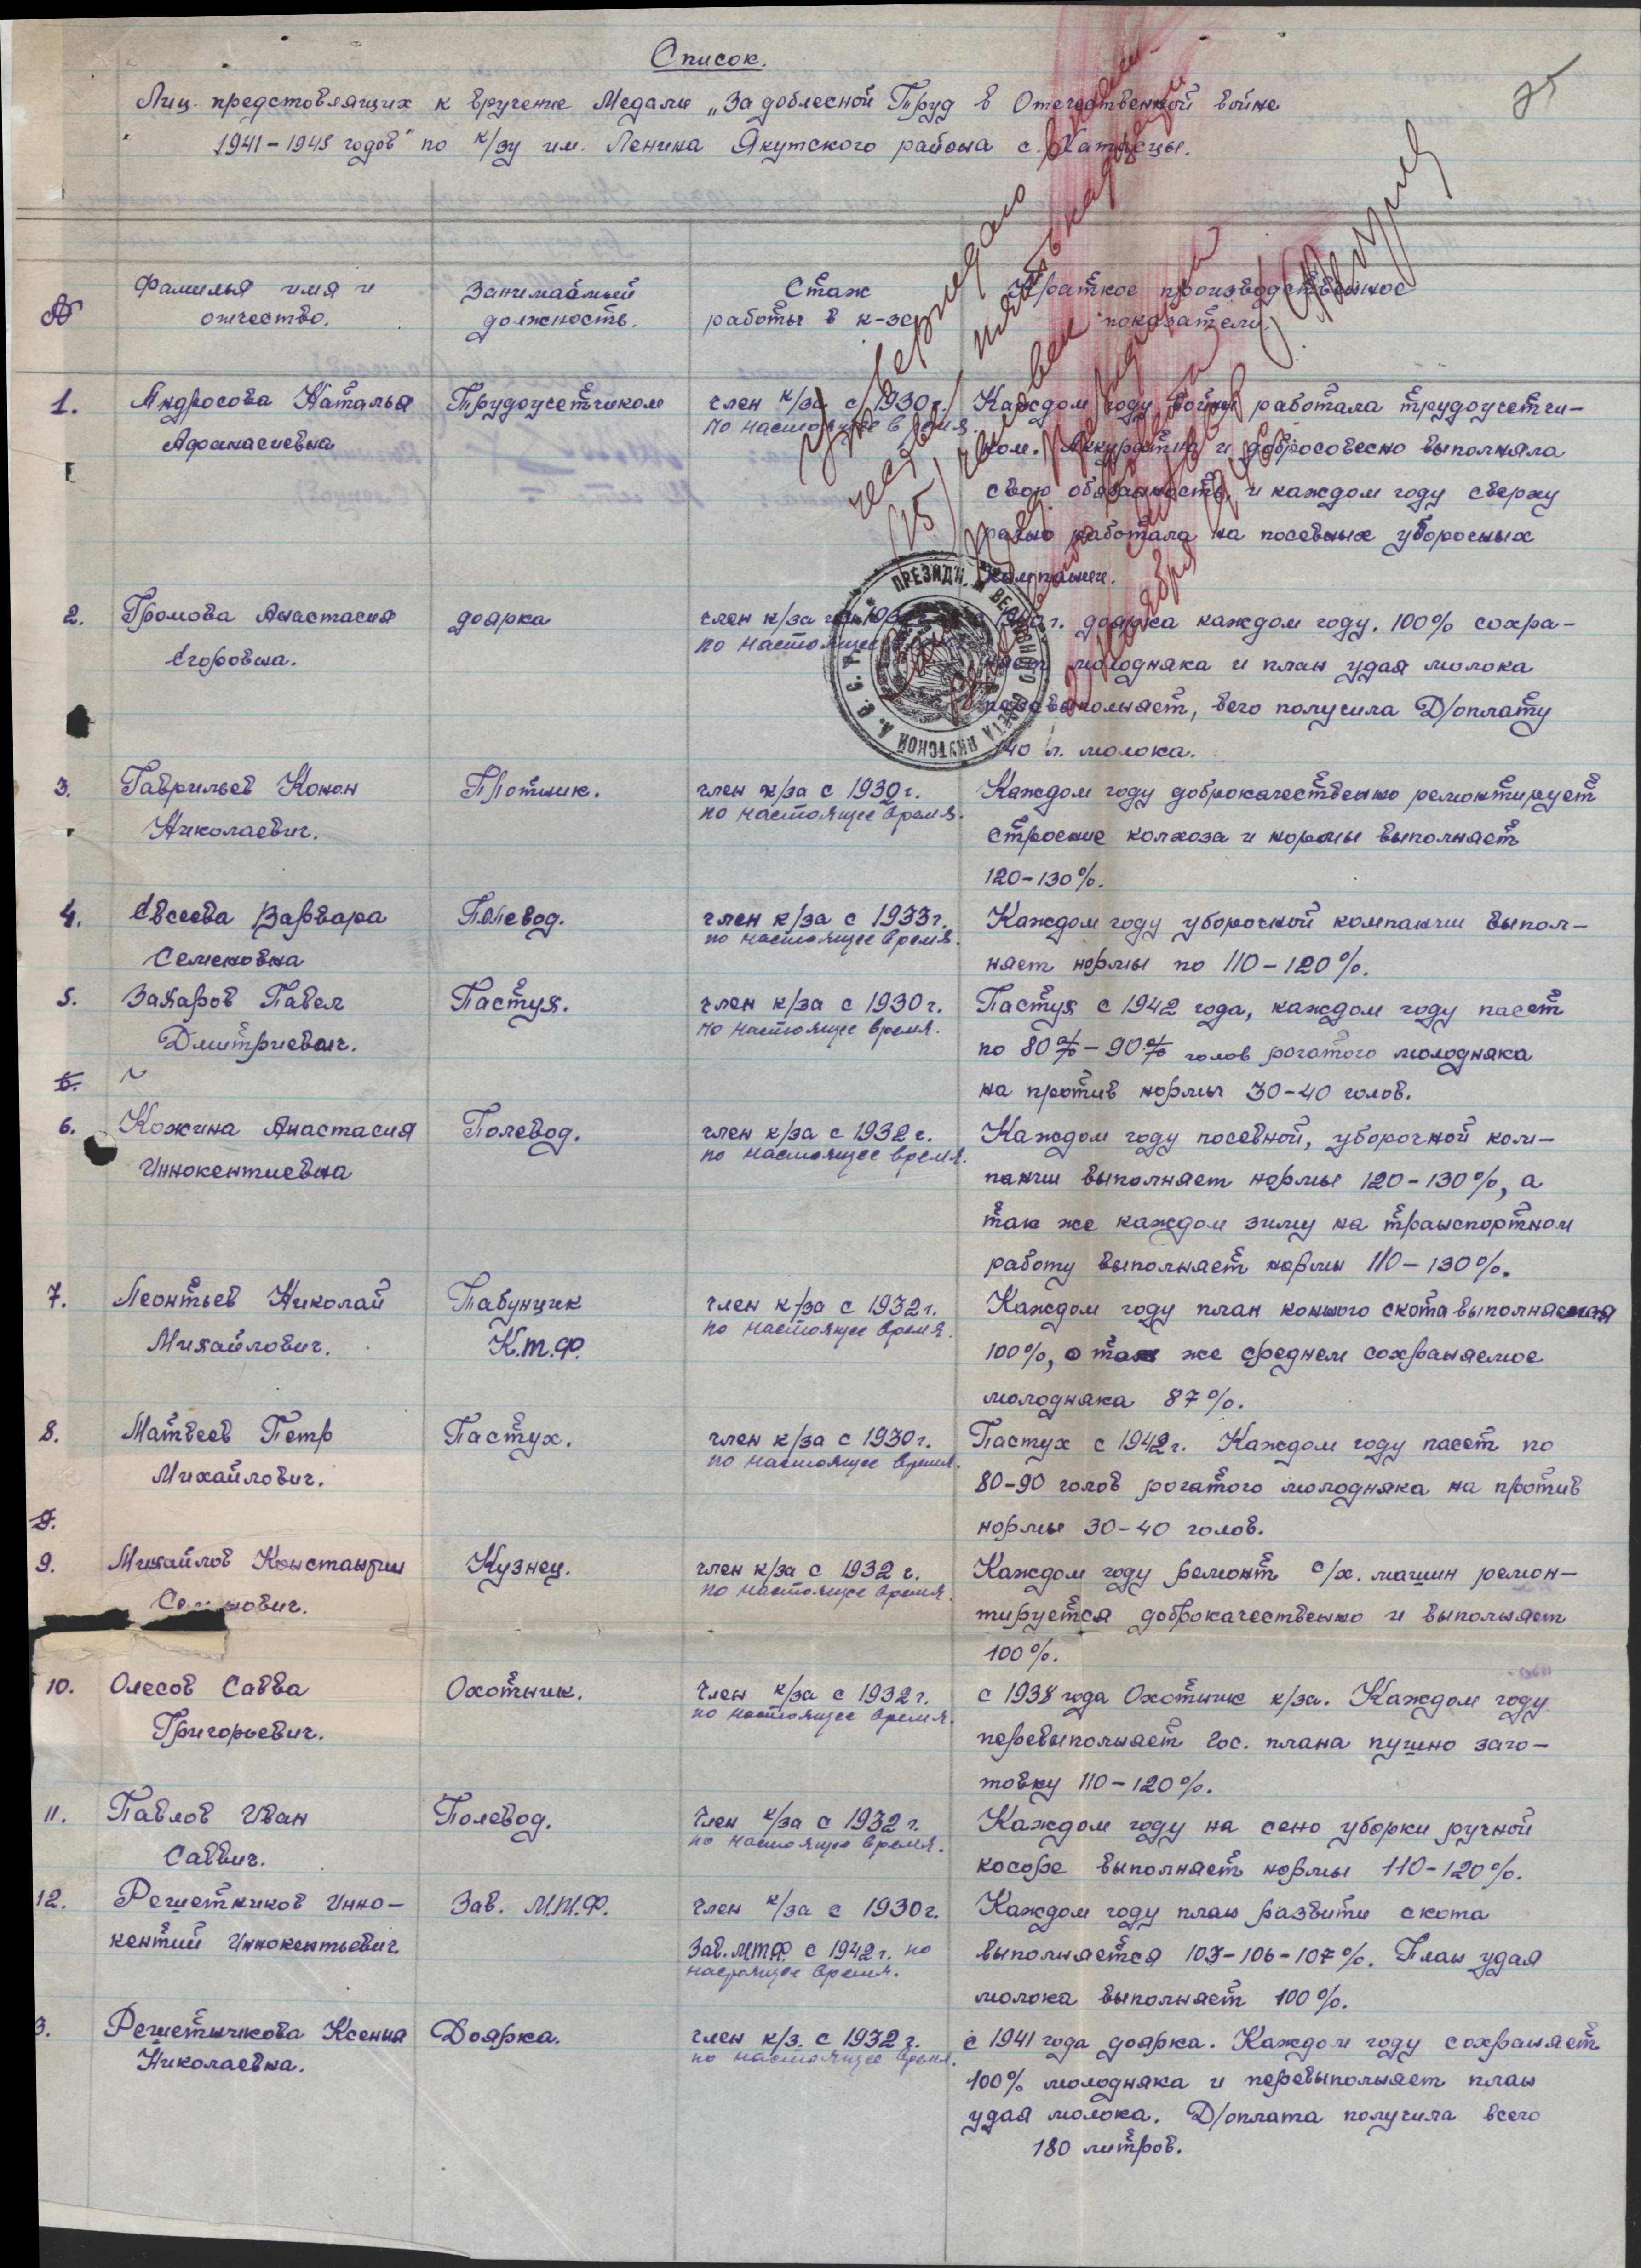 25
Список.
Лиц. предстовляящих к вручение Медали „За доблесной Труд в Отечественной войне
1941-1945 годов" по к/зу им. Ленина Якутского района с. Хатассцы.
№
Фамилья имя и
отчество.
Занимаамый
должность.
Стаж
работы в к-зе
Краткое производственное
показатели.
Утверждаю
человек
(15)
ПРЕЗИДИУМ ВЕРХОВНОГО СОВЕТА ЯКУТСКОЙ А.С.С.Р.
1. Андросова Наталья Трудоусетчиком член к/за с 1930г. Каждом году войны работала трудоусетчи-
Афанасиевна по настоящее время. ком. Аккуратно и добросовесно выполняла
свою обязанность, и каждом году сверху
работала на посевных уборочных
компании.
2. Громова Анастасия доярка член к/за г. доярка каждом году. 100% сохра-
Егоровна. по настоящее няет молодняка и план удая молока
перевыполняет, всего получила Д/оплату
140 л. молока.
3. Гаврильев Конон Плотник. член к/за с 1930г. Каждом году доброкачественно ремонтирует
Николаевич. по настоящее время. строение колхоза и нормы выполняет
120-130%.
4. Евсеева Варвара Полевод. член к/за с 1933г. Каждом году уборочной компании выпол-
Семеновна по настоящее время. няет нормы по 110-120%.
5. Захаров Павел Пастух. член к/за с 1930г. Пастух с 1942 года, каждом году пасет
Дмитриевич. по настоящее время. по 80%-90% голов рогатого молодняка
6. на против нормы 30-40 голов.
6. Кожина Анастасия Полевод. член к/за с 1932г. Каждом году посевной, уборочной ком-
Иннокентиевна по настоящее время. пании выполняет нормы 120-130%, а
так же каждом зиму на транспортном
работу выполняет нормы 110-130%.
7. Леонтьев Николай Табунщик член к/за с 1932г. Каждом году план конного скота выполняемая
Михайлович. К.т.ф. по настоящее время. 100%, а так же среднем сохраняемое
молодняка 87%.
8. Матвеев Петр Пастух. член к/за с 1930г. Пастух с 1942г. Каждом году пасет по
Михайлович. по настоящее время. 80-90 голов рогатого молодняка на против
9. нормы 30-40 голов.
9. Михайлов Константин Кузнец. член к/за с 1932г. Каждом году ремонт с/х. машин ремон-
по настоящее время. тируется доброкачественно и выполняет
100%.
10. Олесов Савва Охотник. Член к/за с 1932г. с 1938 года Охотник к/за. Каждом году
Григорьевич. по настоящее время. перевыполняет Гос. плана пушно заго-
товку 110-120%.
11. Павлов Иван Полевод. Член к/за с 1932г. Каждом году на сено уборки ручной
Саввич. по настоящее время. косоре выполняет нормы 110-120%.
12. Решетников Инно- Зав. М.т.ф. Член к/за с 1930г. Каждом году план развити скота
кентий Иннокентьевич Зав. мтф с 1942г. по выполняется 103-106-107%. План удая
настоящее время. молока выполняет 100%.
3. Решетникова Ксения Доярка. член к/з. с 1932г. с 1941 года доярка. Каждом году сохраняет
Николаевна. по настоящее время. 100% молодняка и перевыполняет план
удая молока. Д/оплата получила всего
180 литров.